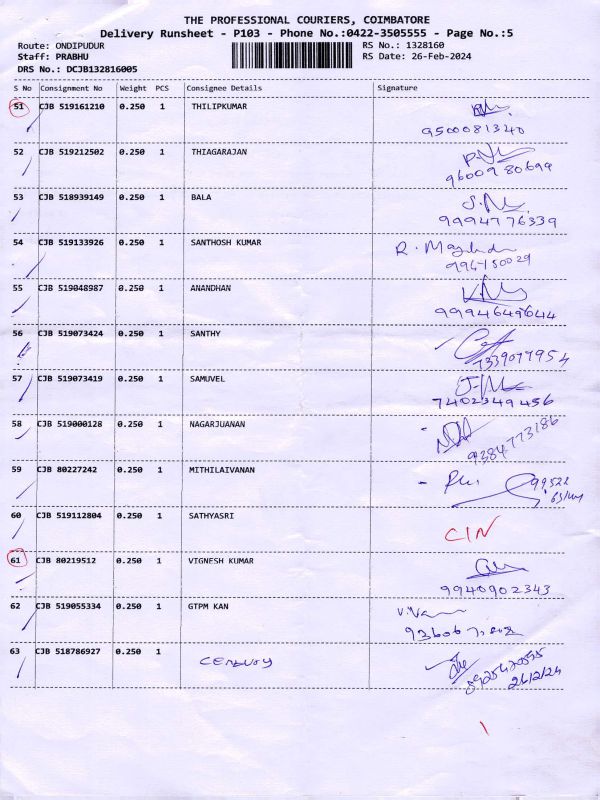 THE PROFESSIONAL COURIERS, COIMBATORE
Delivery Runsheet - P103 - Phone No.:0422-3505555 - Page No.:5
Route: ONDIPUDUR RS No.: 1328160
Staff: PRABHU RS Date: 26-Feb-2024
DRS No.: DCJB132816005
S No Consignment No Weight PCS Consignee Details Signature
51 CJB 519161210 0.250 1 THILIPKUMAR
9500081340
52 CJB 519212502 0.250 1 THIAGARAJAN
9600980699
53 CJB 518939149 0.250 1 BALA
9994776339
54 CJB 519133926 0.250 1 SANTHOSH KUMAR
55 CJB 519048987 0.250 1 ANANDHAN
9994649644
56 CJB 519073424 0.250 1 SANTHY
7339077954
57 CJB 519073419 0.250 1 SAMUVEL
7402349456
58 CJB 519000128 0.250 1 NAGARJUANAN
9384773186
59 CJB 80227242 0.250 1 MITHILAIVANAN
60 CJB 519112804 0.250 1 SATHYASRI CIN
61 CJB 80219512 0.250 1 VIGNESH KUMAR
9940902343
62 CJB 519055334 0.250 1 GTPM KAN
63 CJB 518786927 0.250 1 CENBUOY
26/2/24